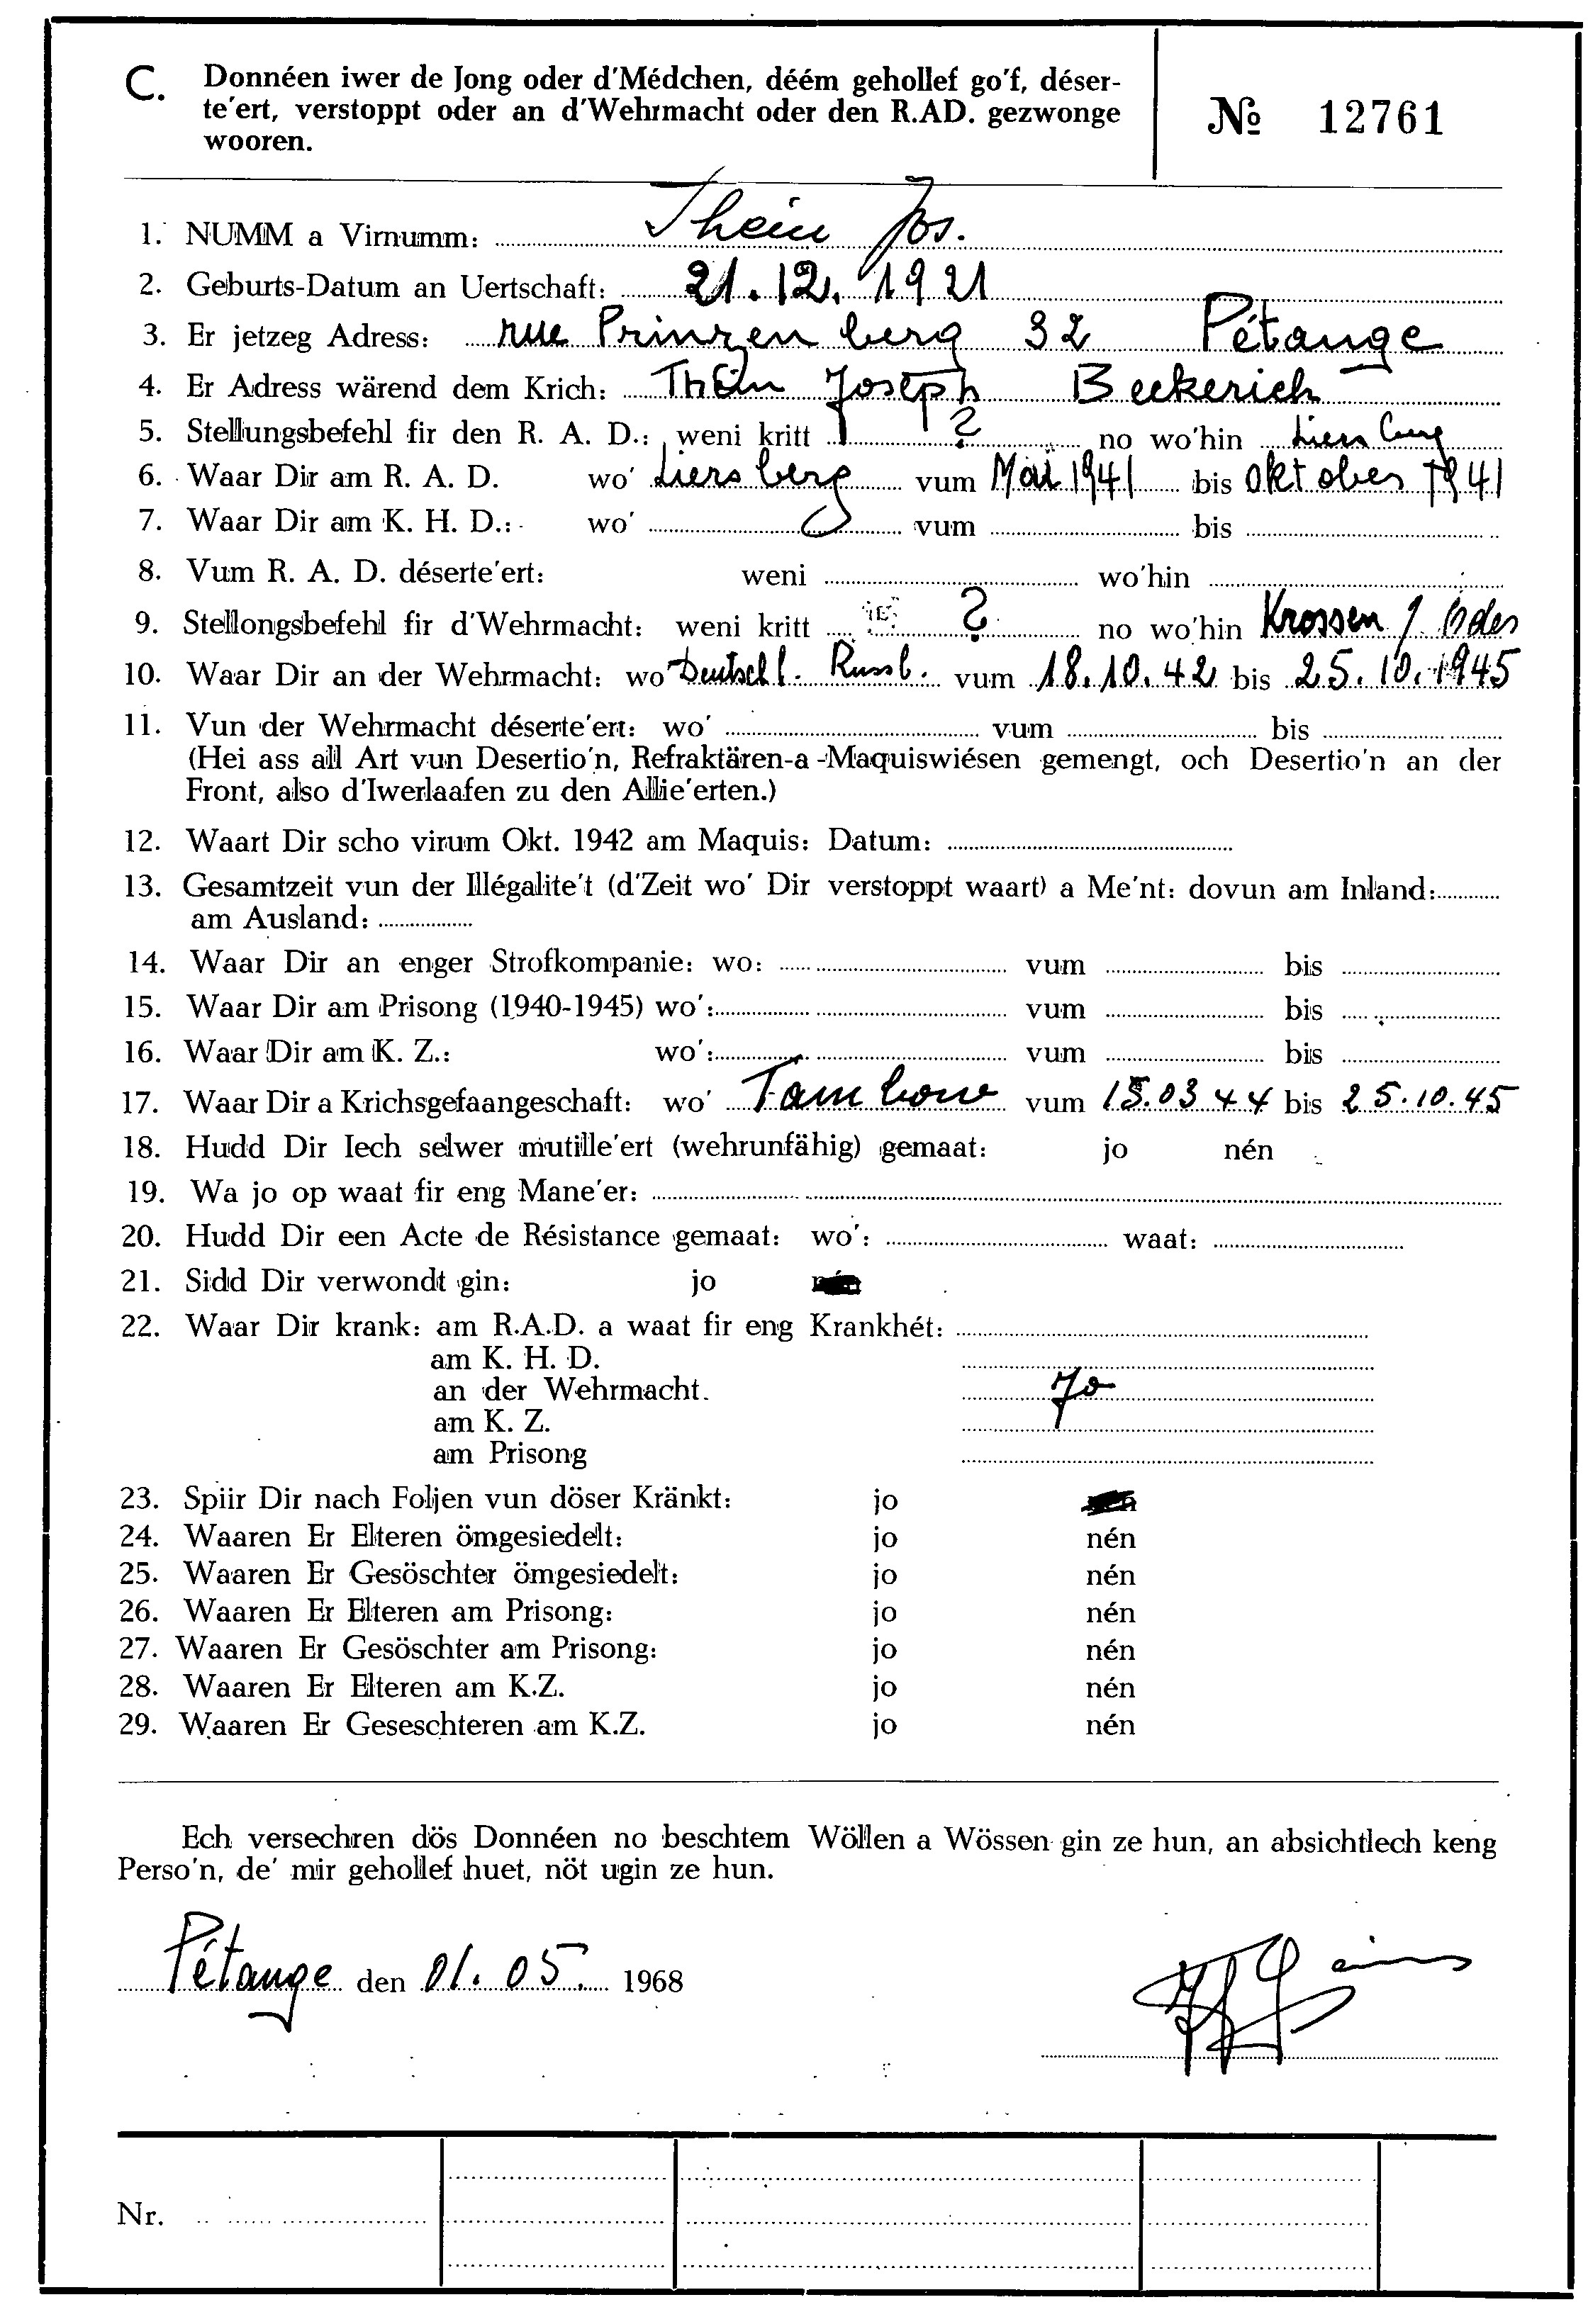 C. Donnéen iwer de Jong oder d'Médchen, déém gehollef go'f, déser-
te'ert, verstoppt oder an d'Wehrmacht oder den R.AD. gezwonge
wooren.
№ 12761
1. NUMM a Virnumm: Thein Jos.
2. Geburts-Datum an Uertschaft: 21.12.1921
3. Er jetzeg Adress: rue Prinzenberg 32 Pétange
4. Er Adress wärend dem Krich: Thein Joseph Beckerich
5. Stellungsbefehl fir den R. A. D.: weni kritt ? no wo'hin Liersberg
6. Waar Dir am R. A. D. wo' Liersberg vum Mai 1941 bis Oktober 1941
7. Waar Dir am K. H. D.: wo' vum bis
8. Vum R. A. D. déserte'ert: weni wo'hin
9. Stellongsbefehl fir d'Wehrmacht: weni kritt ? no wo'hin Krossen / Oder
10. Waar Dir an der Wehrmacht: wo' Deutschl. Russl. vum 18.10.42 bis 25.10.1945
11. Vun der Wehrmacht déserte'ert: wo' vum bis
(Hei ass all Art vun Desertio'n, Refraktären-a-Maquiswiésen gemengt, och Desertio'n an der
Front, also d'Iwerlaafen zu den Allie'erten.)
12. Waart Dir scho virum Okt. 1942 am Maquis: Datum:
13. Gesamtzeit vun der Illégalite't (d'Zeit wo' Dir verstoppt waart) a Me'nt: dovun am Inland:
am Ausland:
14. Waar Dir an enger Strofkompanie: wo: vum bis
15. Waar Dir am Prisong (1940-1945) wo': vum bis
16. Waar Dir am K. Z.: wo': vum bis
17. Waar Dir a Krichsgefaangeschaft: wo' Tambow vum 15.03 44 bis 25.10.45
18. Hudd Dir Iech selwer mutille'ert (wehrunfähig) gemaat: jo nén
19. Wa jo op waat fir eng Mane'er:
20. Hudd Dir een Acte de Résistance gemaat: wo': waat:
21. Sidd Dir verwondt gin: jo
22. Waar Dir krank: am R.A.D. a waat fir eng Krankhét:
am K. H. D.
an der Wehrmacht. Jo
am K. Z.
am Prisong
23. Spiir Dir nach Foljen vun döser Kränkt: jo
24. Waaren Er Elteren ömgesiedelt: jo nén
25. Waaren Er Gesöschter ömgesiedelt: jo nén
26. Waaren Er Elteren am Prisong: jo nén
27. Waaren Er Gesöschter am Prisong: jo nén
28. Waaren Er Elteren am K.Z. jo nén
29. Waaren Er Geseschteren am K.Z. jo nén
Ech versechren dös Donnéen no beschtem Wöllen a Wössen gin ze hun, an absichtlech keng
Perso'n, de' mir gehollef huet, nöt ugin ze hun.
Pétange den 01. 05. 1968
Nr.